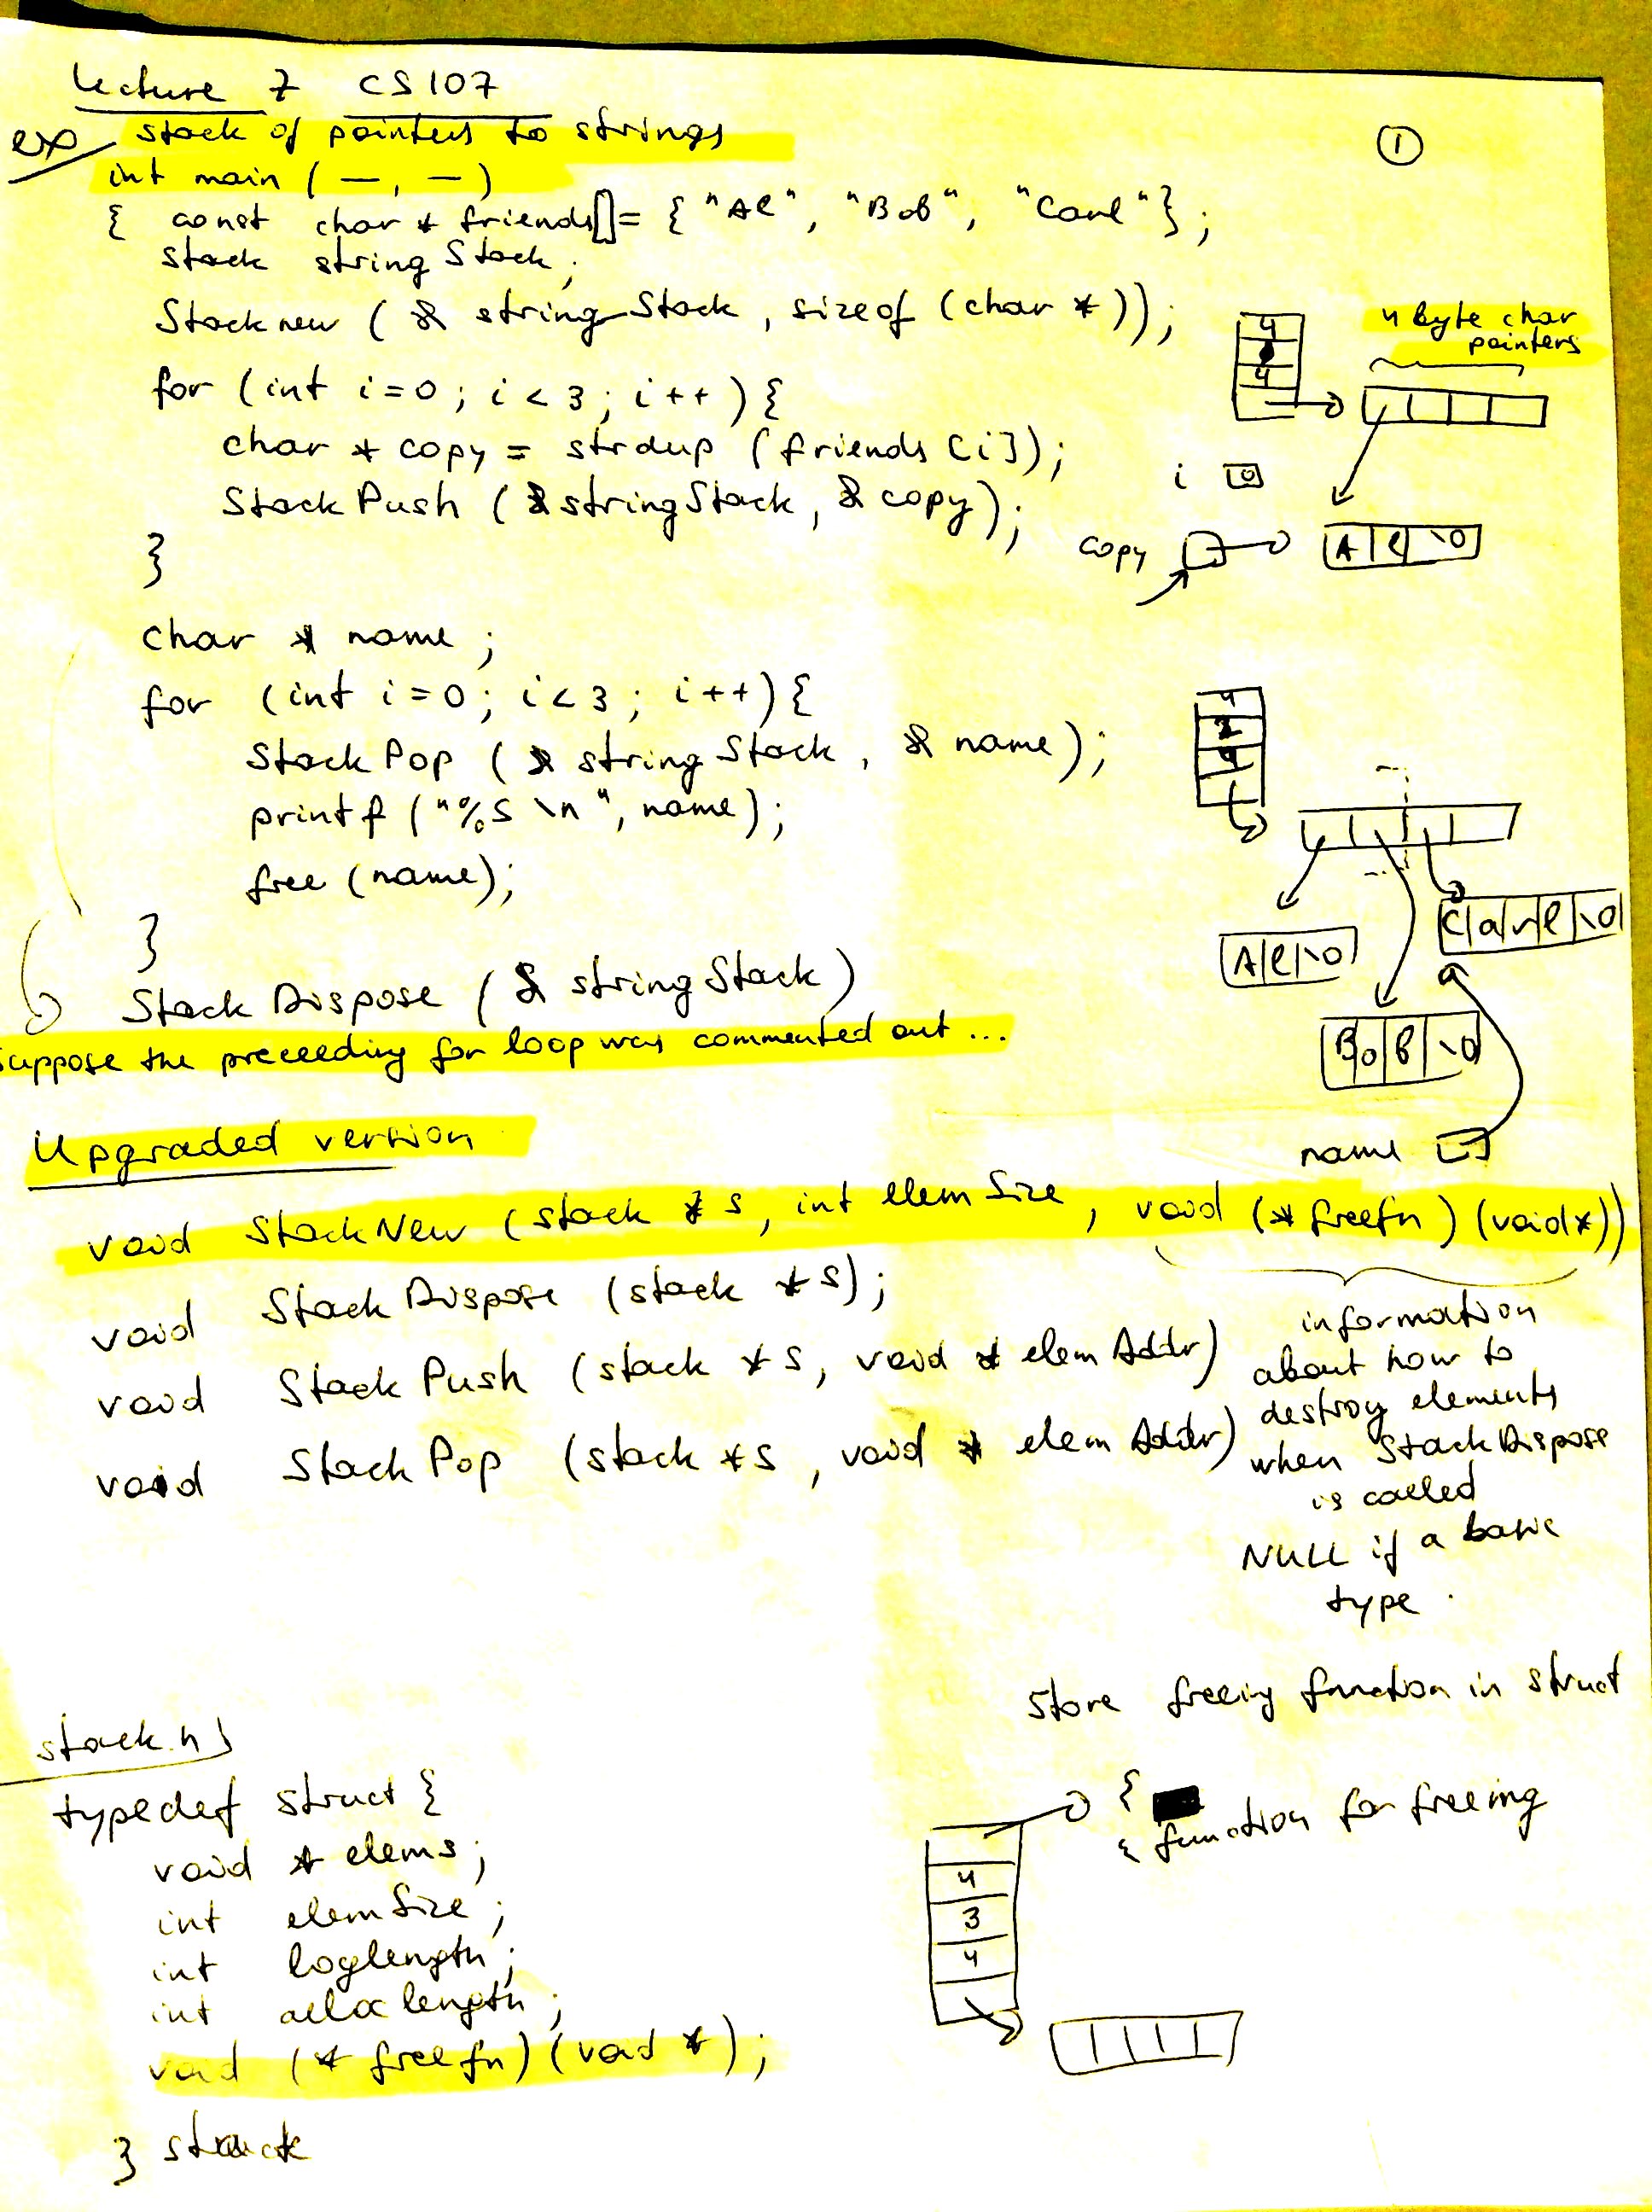 Lecture 7 CS107
①
ex stack of pointers to strings
int main ( — , — )
{ const char * friends[] = { "Al", "Bob", "Carl" };
stack stringStack;
Stacknew ( & stringStack , sizeof (char *));
4 byte char
pointers
4
4
for (int i=0 ; i < 3 ; i++ ) {
char * copy = strdup (friends [i]);
i 0
Stack Push ( & stringStack , & copy );
copy A l \0
}
char * name ;
for (int i=0 ; i<3 ; i++) {
4
2
4
Stack Pop ( & stringStack , & name );
printf ("%s \n", name);
free (name);
C a r l \0
A l \0
}
Stack Dispose ( & stringStack )
Suppose the preceeding for loop was commented out ...
Bo B \0
Upgraded version
name
void Stack New (stack * s, int elemSize , void (* freefn ) (void*))
void Stack Dispose (stack * s);
void Stack Push (stack * s, void * elem Addr)
void Stack Pop (stack * s , void * elem Addr)
information
about how to
destroy elements
when Stack Dispose
is called
NULL if a basic
type .
Store freeing function in struct
stack.h
typedef struct {
{
{ function for freeing
void * elems;
int elemSize ;
int loglength;
int alloclength;
void (* freefn) (void *);
} stack
4
3
4